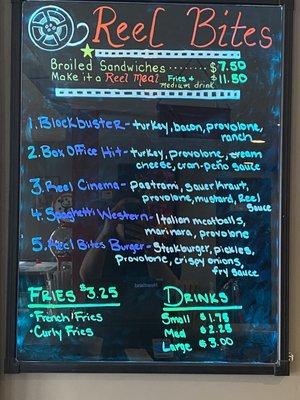 Reel Bites
Broiled Sandwiches ........ $7.50
Make it a Reel Meal Fries + Medium drink $11.50
1. Blockbuster - turkey, bacon, provolone,
ranch
2. Box Office Hit - turkey, provolone, cream
cheese, cran-peño sauce
3. Reel Cinema - pastrami, sauerkraut,
provolone, mustard, Reel
Sauce
4. Spaghetti Western - Italian meatballs,
marinara, provolone
5. Reel Bites Burger - Steakburger, pickles,
Provolone, crispy onions,
fry sauce
Fries $3.25
• French Fries
• Curly Fries
Drinks
Small $1.75
Med $2.25
Large $3.00